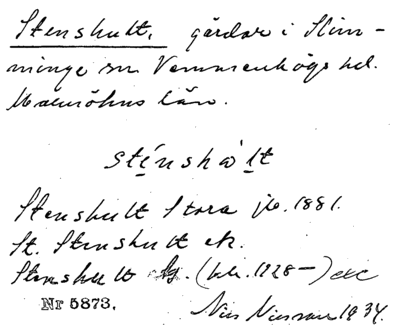 Stenshult. gårdar i Slim-
minge sn Vemmenhögs hd.
Malmöhus län.
sténshòlt
Stenshult Stora jb. 1881.
St. Stenshult ek.
Stenshult (bl. 1228—) etc
Nr 5873. Nils Nilsson 1934.